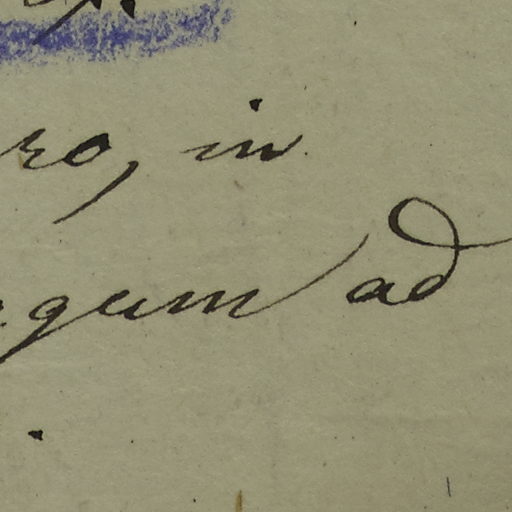 ro, in
gum ad